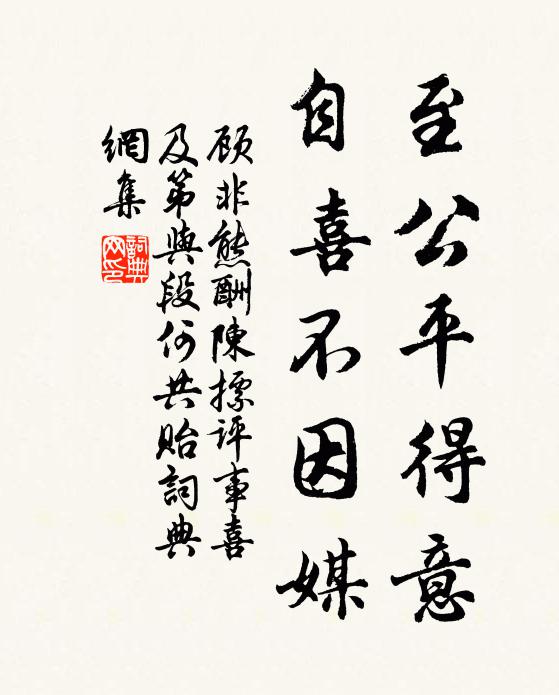 至公平得意
自喜不因媒
顾非熊酬陳摽评事喜
及第與段何共贻詞典
網集
詞典网印